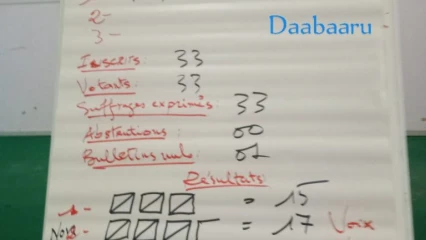 Daabaaru
2-
3-
Inscrits: 33
Votants: 33
Suffrages exprimés: 33
Abstentions: 00
Bulletins nuls: 01
Résultats
1- = 15
= 17 Voix